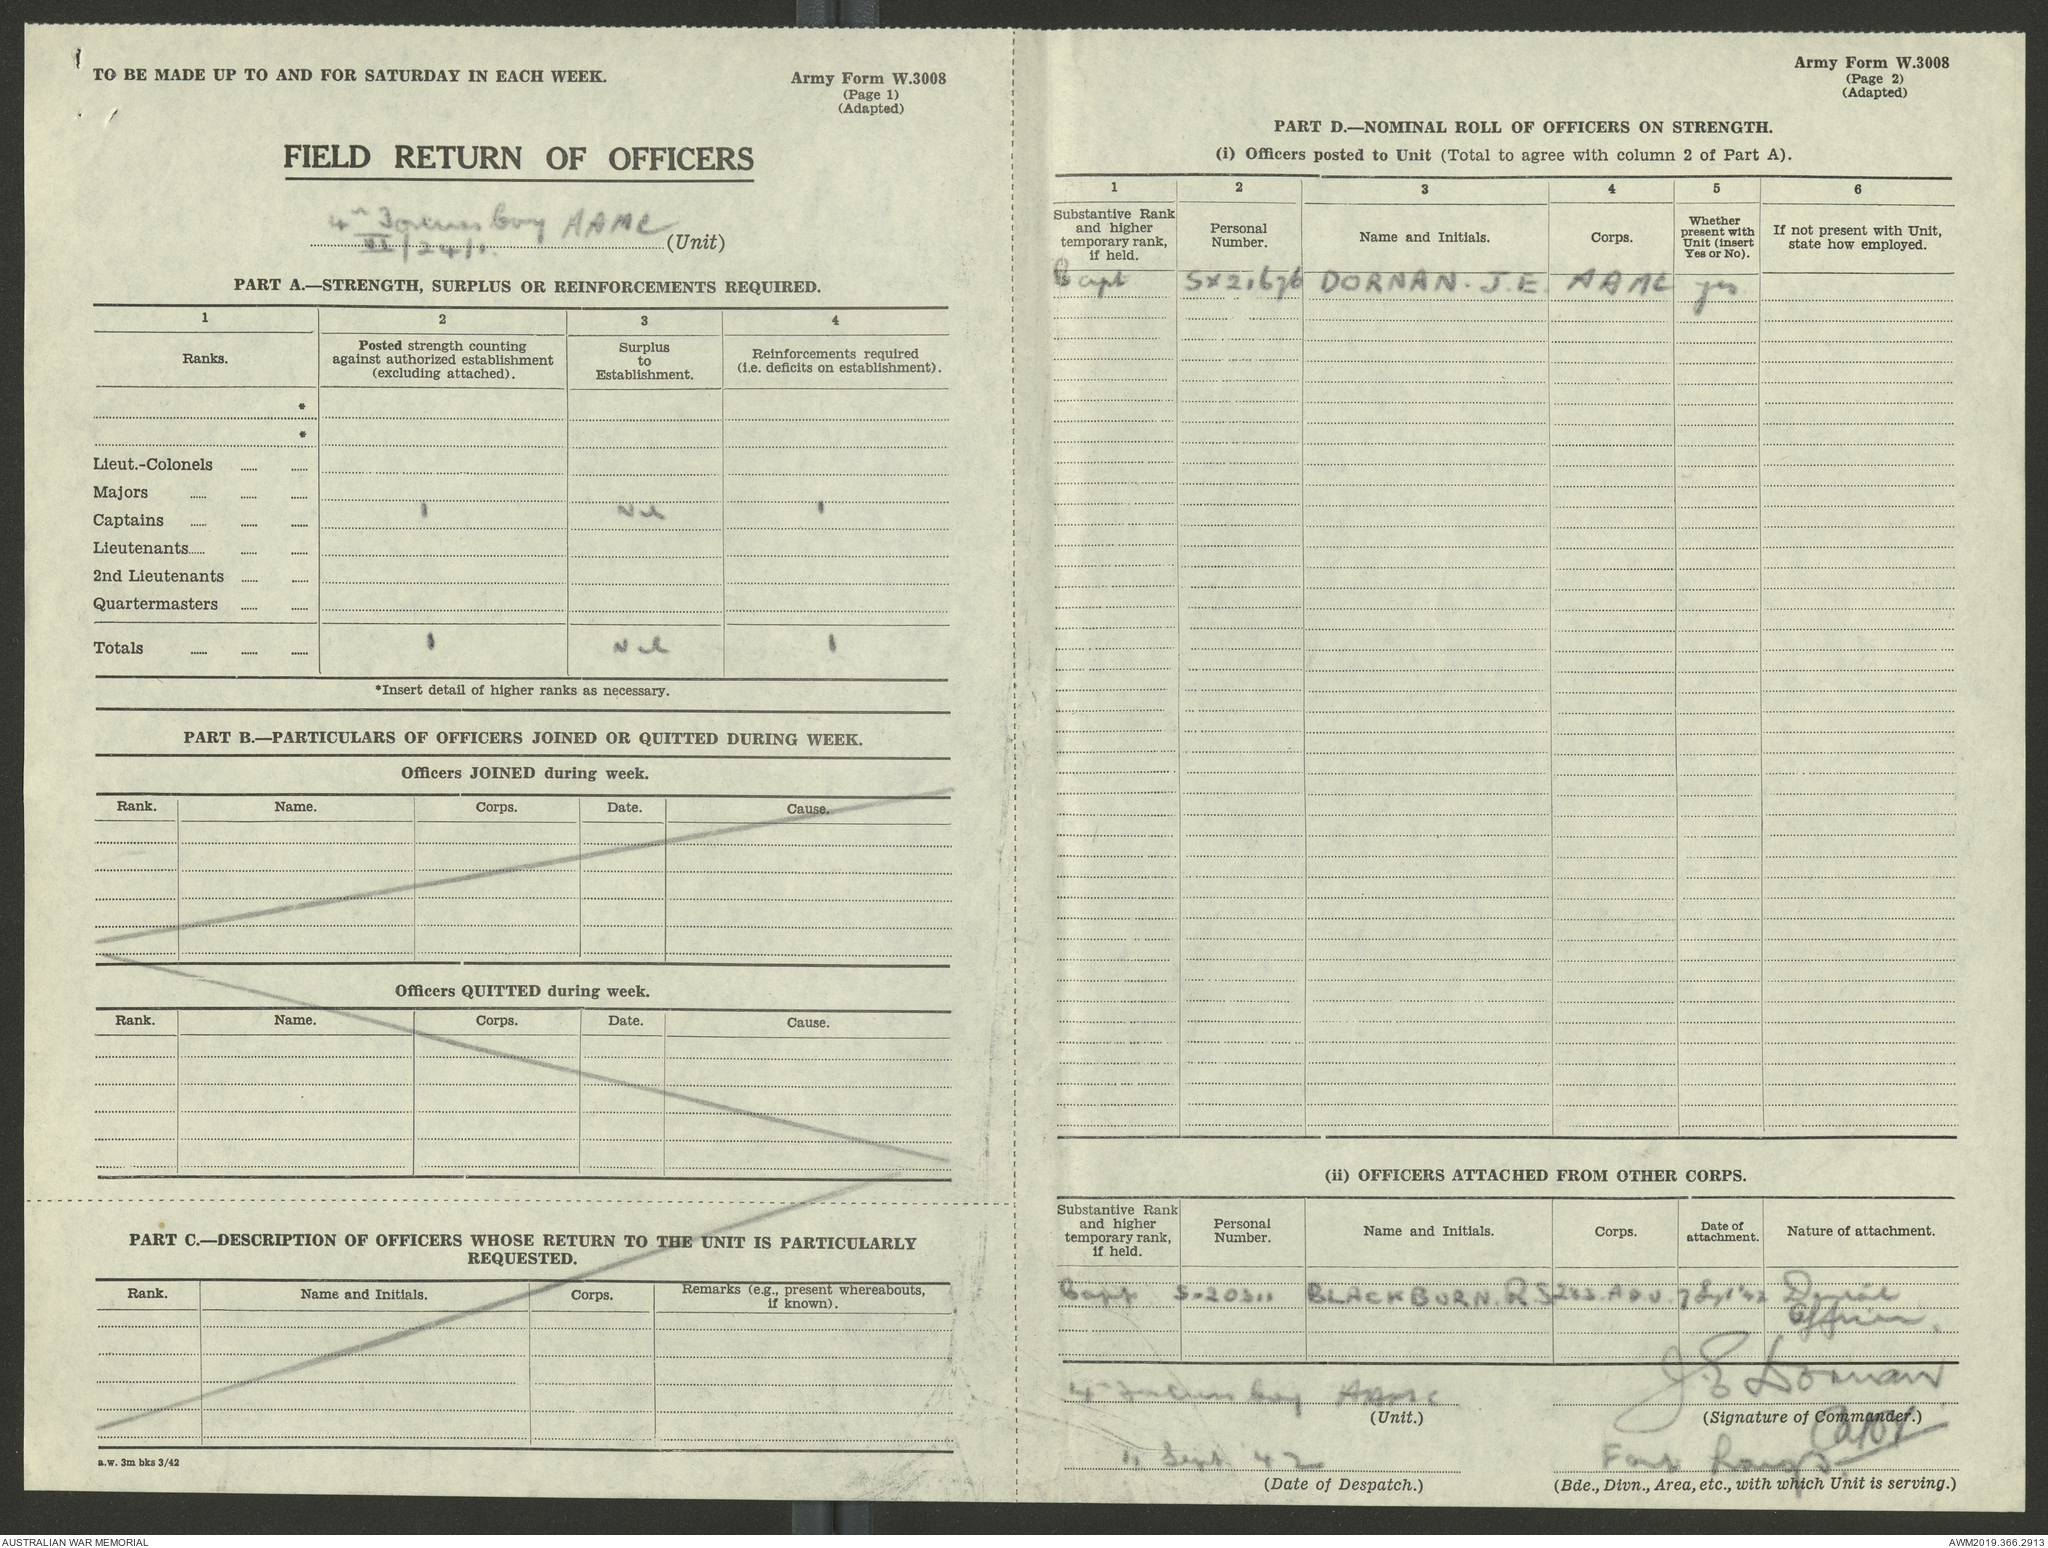 TO BE MADE UP TO AND FOR SATURDAY IN EACH WEEK.
Army Form W.3008
(Page 1)
(Adapted)
FIELD RETURN OF OFFICERS
4th Coy AAMC
(Unit)
PART A.—STRENGTH, SURPLUS OR REINFORCEMENTS REQUIRED.
1 2 3 4
Ranks.
Posted strength counting against authorized establishment (excluding attached).
Surplus to Establishment.
Reinforcements required (i.e. deficits on establishment).
*
*
Lieut.-Colonels
Majors
Captains 1 Nil 1
Lieutenants
2nd Lieutenants
Quartermasters
Totals 1 Nil 1
*Insert detail of higher ranks as necessary.
PART B.—PARTICULARS OF OFFICERS JOINED OR QUITTED DURING WEEK.
Officers JOINED during week.
Rank. Name. Corps. Date. Cause.
Officers QUITTED during week.
Rank. Name. Corps. Date. Cause.
PART C.—DESCRIPTION OF OFFICERS WHOSE RETURN TO THE UNIT IS PARTICULARLY
REQUESTED.
Rank. Name and Initials. Corps. Remarks (e.g., present whereabouts, if known).
a.w. 3m bks 3/42
Army Form W.3008
(Page 2)
(Adapted)
PART D.—NOMINAL ROLL OF OFFICERS ON STRENGTH.
(i) Officers posted to Unit (Total to agree with column 2 of Part A).
1 2 3 4 5 6
Substantive Rank and higher temporary rank, if held.
Personal Number.
Name and Initials.
Corps.
Whether present with Unit (insert Yes or No).
If not present with Unit, state how employed.
Capt SX21676 DORNAN. J.E. AAMC yes
(ii) OFFICERS ATTACHED FROM OTHER CORPS.
Substantive Rank and higher temporary rank, if held.
Personal Number.
Name and Initials.
Corps.
Date of attachment.
Nature of attachment.
Capt BLACKBURN. R.S 7 Sept '42 Dental
Officer.
J E Dornan
4th Coy AAMC
(Unit.)
(Signature of Commander.)
Capt
Sept. 42
(Date of Despatch.)
(Bde., Divn., Area, etc., with which Unit is serving.)
AUSTRALIAN WAR MEMORIAL
AWM2019.366.2913